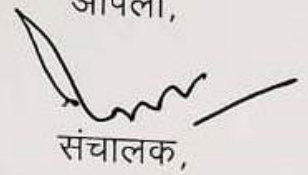 आपला,
संचालक,